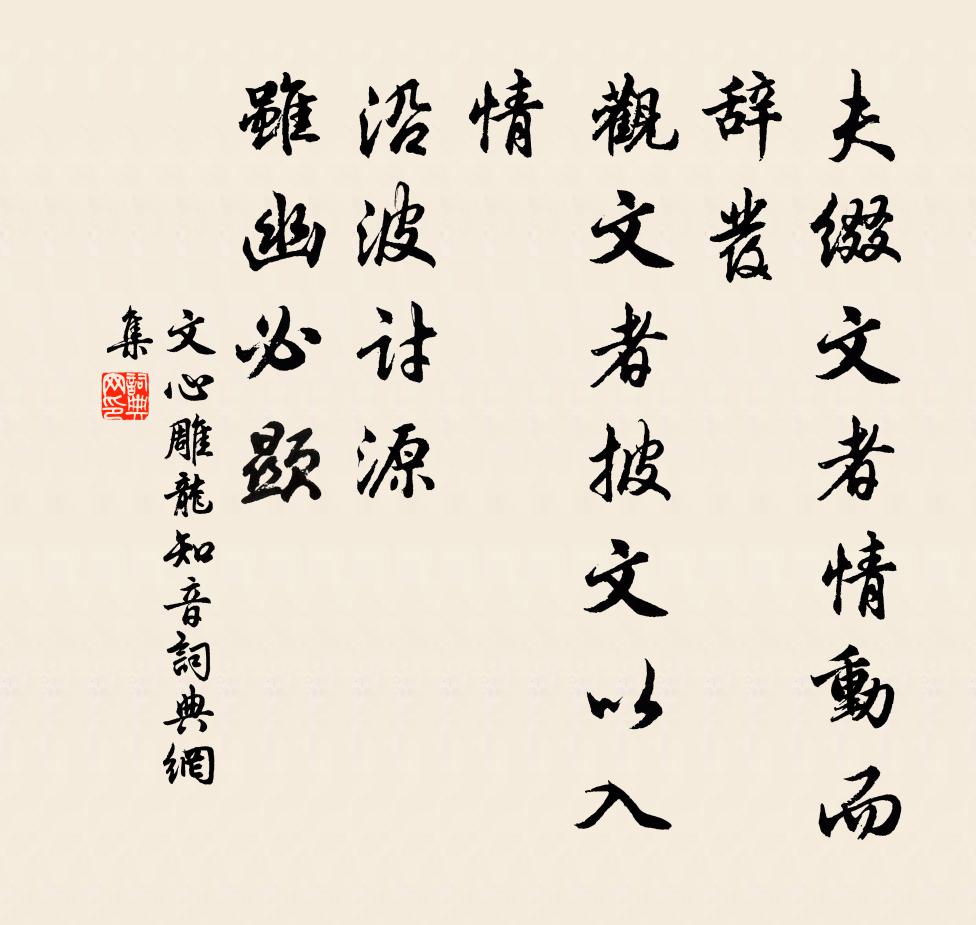 夫綴文者情動而
辞發
觀文者披文以入
情
沿波討源
雖幽必顯
文心雕龍知音詞典網
集
詞典網印